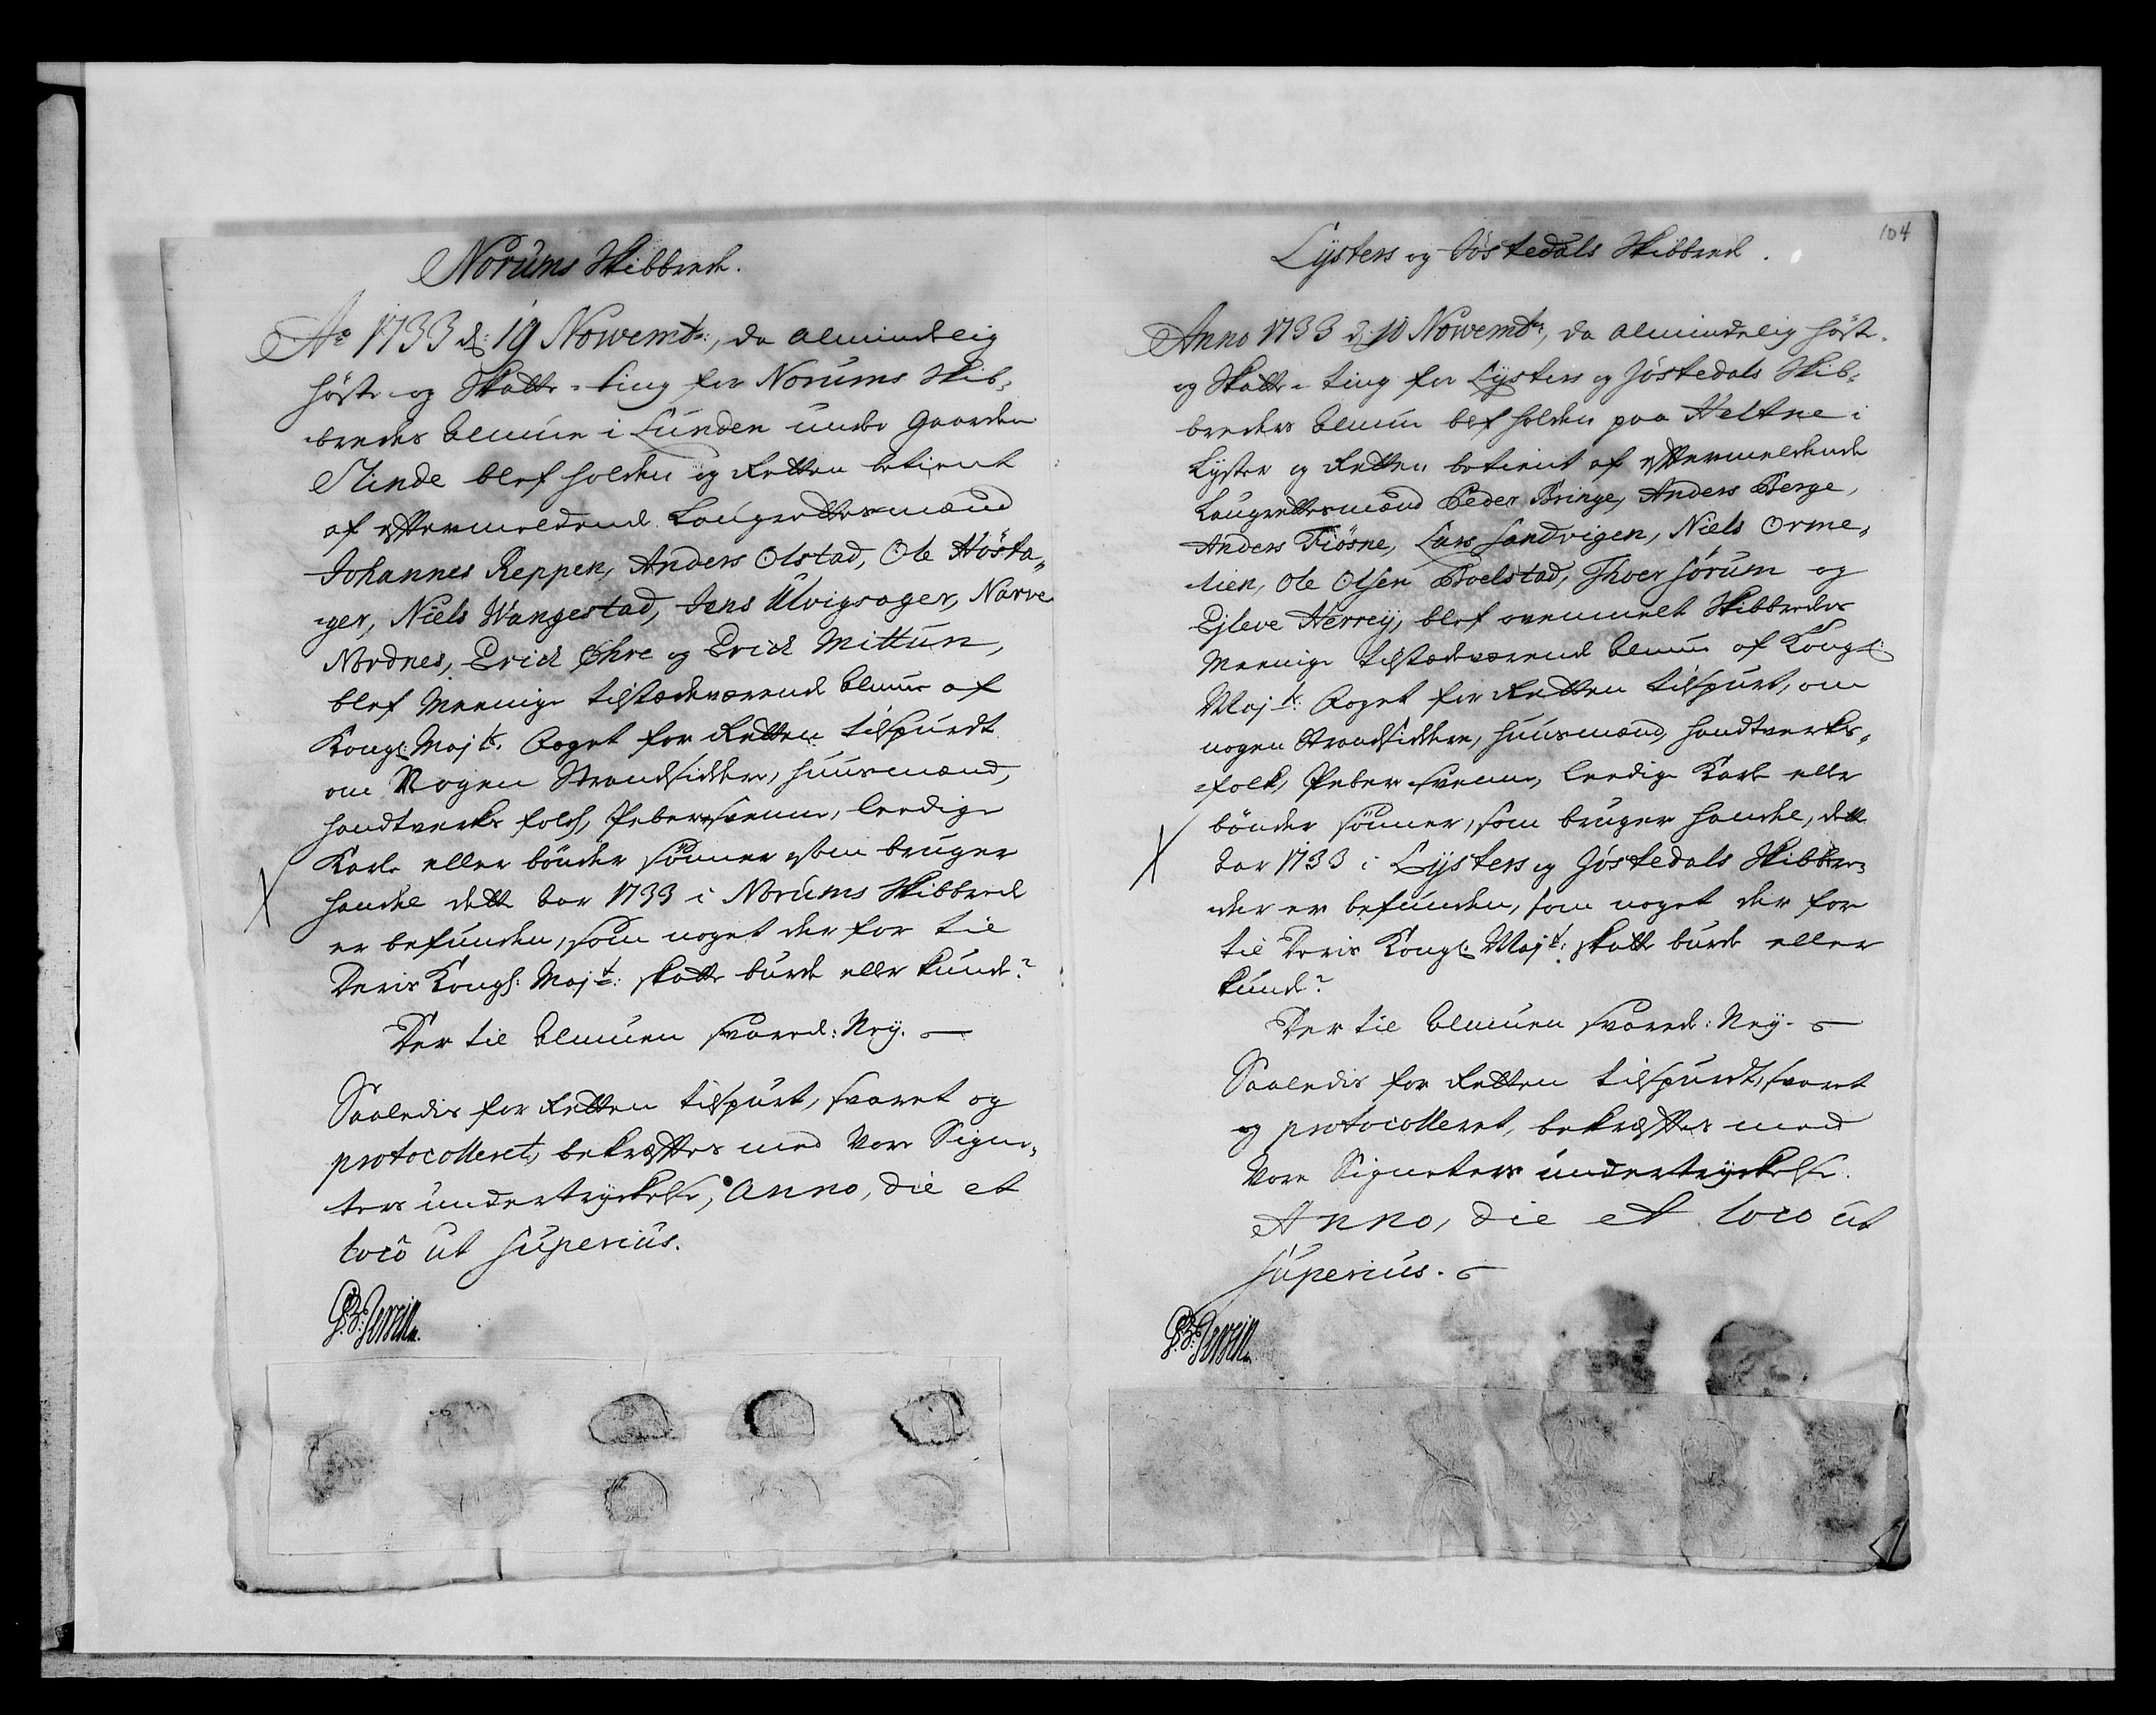 Norums Skibbrede.
Ao 1733 d: 19 Novembr:, da almindelig
høste og Skatte-ting for Norums Skib-
bredes Almue i Lunden under Gaarden
Slinde blef holden og Retten betient
af efftermeldende Laugrettesmænd
Johannes Reppen, Anders Olstad, Ole Høsta-
ger, Niels Wangestad, Jens Ulvigsager, Narve
Nordnes, Erich Øhre og Erich Mittun,
blef Meenige tilstædeværende Almue af
Kongl: Majts. Foget for Retten tilspurdt
om Nogen Strandsiddere, huusmænd,
handtverks folch, Pebersvenne, leedige
Karle eller bönder sønner som bruger
handel dette Aar 1733 i Norums Skibbrede
er befunden, som noget der for til
Deris Kongl: Majt: skatte burde eller kunde?
Der til Almuen svarede: Neij.
Saaledis for Retten tilspurt, svaret og
protocolleret, bekræfftes med Vore Signe-
ters undertryckelse, Anno, die et
loco ut superius.
Lysters og Jóstedals Skibbrede.
104
Anno 1733 d: 10 Novembr:, da almindelig høste-
og Skatte-ting for Lysters og Jóstedals Skib-
breders Almue blef holden paa Heltne i
Lyster og Retten betient af efftermeldende
Laugrettesmænd Peder Bringe, Anders Berge,
Anders Fiósne, Lars Sandvigen, Niels Orme-
lien, Ole Olsen Boelstad, Thoer Sórum og
Ejleve Herreij, blef ovenmelte Skibbreders
Meenige tilstædeværende Almue af Kongl:
Majts: Foget for Retten tilspurt, om
nogen Strandsiddere, huusmænd, handtverks-
folck, Pebersvenne, leedige Karle eller
bönder sønner, som bruger handel, dette
Aar 1733 i Lysters og Jóstedals Skibbre-
der er befunden, som noget der for
til Deris Kongl: Majt: skatte burde eller
kunde?
Der til Almuen svarede: Neij.
Saaledis for Retten tilspurdt, svaret
og protocolleret, bekræfftes med
Vore Signeters undertryckelse.
Anno, die et loco ut
superius.